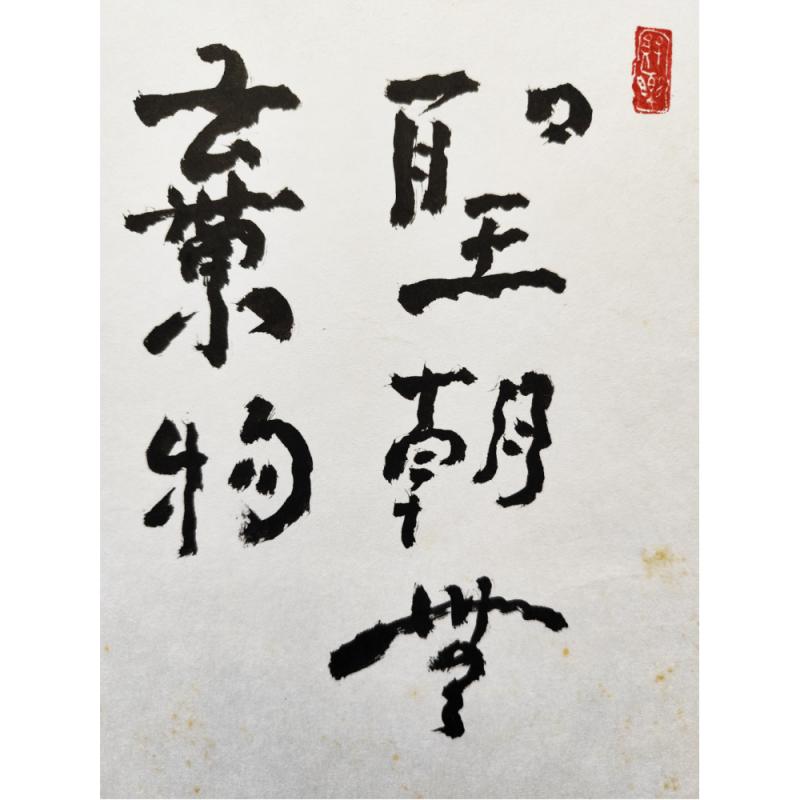 聖朝無
棄物